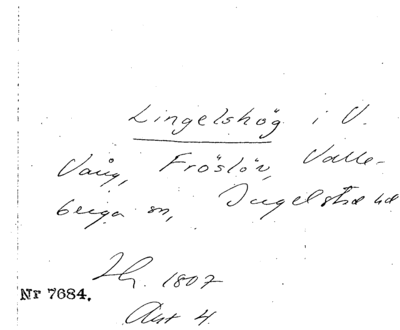 Lingelshög i V.
Vång, Fröslöv, Valle-
berga sn, Ingelstad hd
Lh. 1807
Nr 7684.
Akt 4.